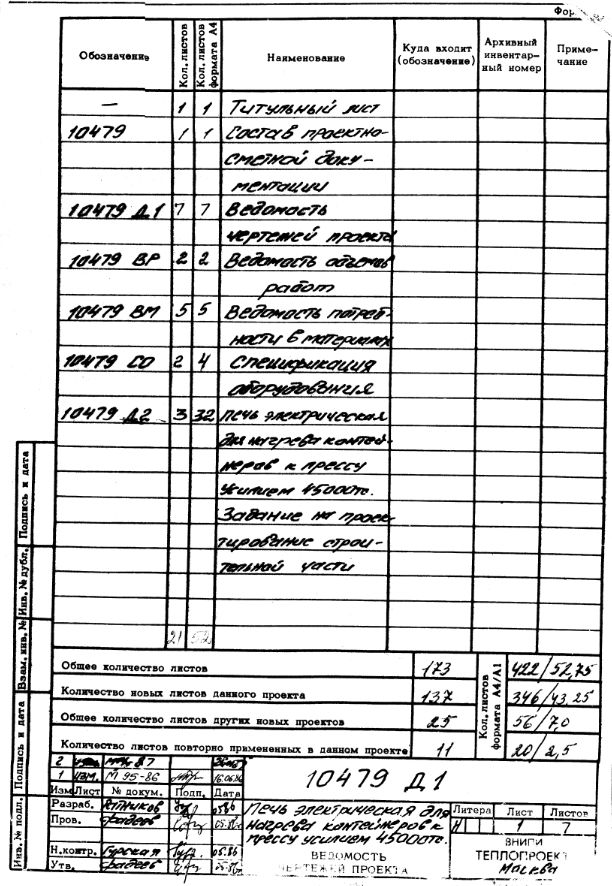 Обозначение Кол. листов Кол. листов формата А4 Наименование Куда входит (обозначение) Архивный инвентарный номер Примечание
— 1 1 Титульный лист
10479 1 1 Состав проектно-
сметной доку-
ментации
10479 Д1 7 7 Ведомость
чертежей проекта
10479 ВР 2 2 Ведомость объемов
работ
10479 ВМ 5 5 Ведомость потреб-
ности в материалах
10479 СО 2 4 Спецификация
оборудования
10479 Д2 3 32 Печь электрическая
для нагрева контей-
неров к прессу
усилием 45000тс.
Задание на проек-
тирование строи-
тельной части
21 52
Общее количество листов 173 Кол. листов формата А4/А1 422/52,75
Количество новых листов данного проекта 137 346/43,25
Общее количество листов других новых проектов 25 56/7,0
Количество листов повторно примененных в данном проекте 11 20/2,5
2
1 изм. М 95-86 16.06.86
Изм Лист № докум. Подп. Дата
10479 Д1
Разраб. 05.86
Пров. Фадеев 05.86
Н.контр. Гурская 05.86
Утв. Фадеев 05.86
Печь электрическая для
нагрева контейнеров к
прессу усилием 45000тс.
ВЕДОМОСТЬ
ЧЕРТЕЖЕЙ ПРОЕКТА
Литера Лист Листов
И 1 7
ВНИПИ
ТЕПЛОПРОЕКТ
Москва
Подпись и дата
Инв. № дубл.
Взам. инв. №
Подпись и дата
Инв. № подл.